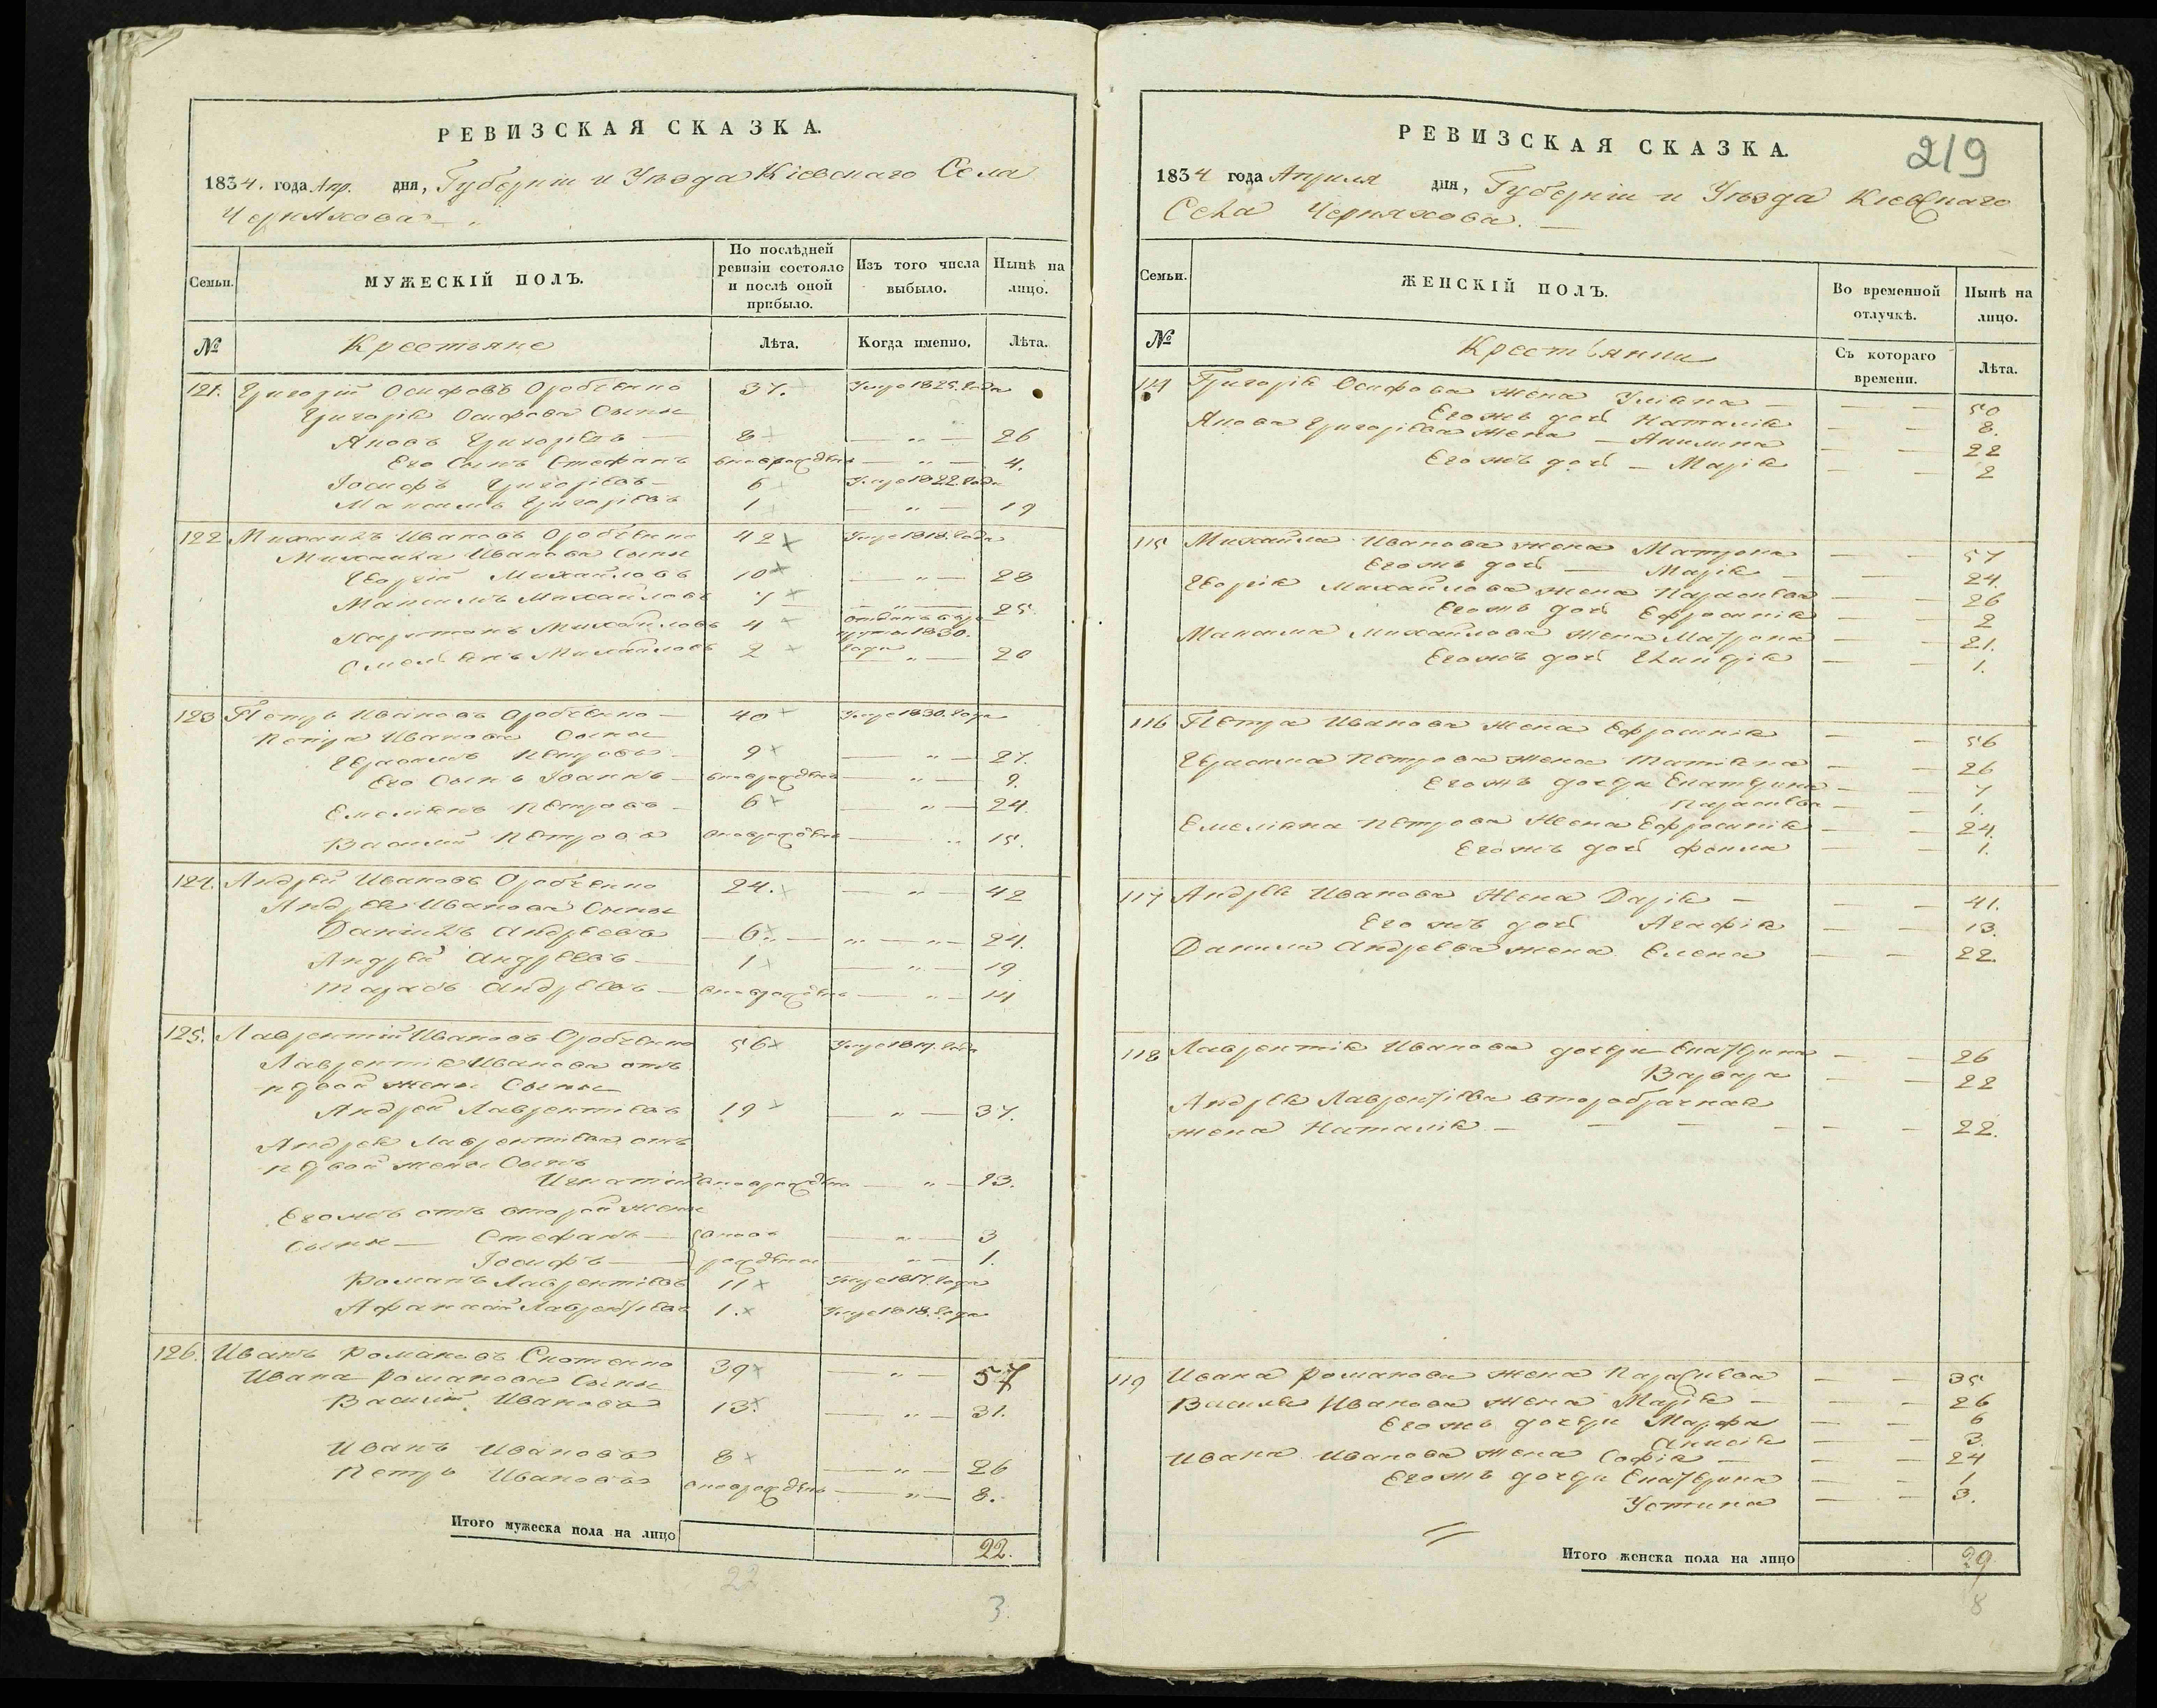 РЕВИЗСКАЯ СКАЗКА.
1834. года Апр. дня, Губерніи и Уѣзда Кіевскаго Села
Черняхова
Семьи. МУЖЕСКІЙ ПОЛЪ. По послѣдней ревизіи состояло и послѣ оной прибыло. Изъ того числа выбыло. Нынѣ на лицо.
№ Крестьяне Лѣта. Когда именно. Лѣта.
121. Григорій Осифовъ 37. Умре 1825. года
Григорія Осифова Сыны
Яковъ Григоріевъ 8 26
Его Сынъ Стефанъ вновьрожденъ 4.
Іосифъ Григоріевъ 6 Умре 1822. года
Максимъ Григоріевъ 1 19
122 Михаилъ Ивановъ 42 Умре 1818. года
Михаила Иванова Сыны
Георгій Михайловъ 10 28
Максимъ Михайловъ 7 25
Харитонъ Михайловъ 4 отданъ въ рекруты 1830. года
Омельянъ Михайловъ 2 20
123 Петръ Ивановъ 40 Умре 1830. года
Петра Иванова Сыны
Герасимъ Петровъ 9 27.
Его Сынъ Іоаннъ вновьрожденъ 9.
Емеліянъ Петровъ 6 24
Василій Петровъ вновьрожденъ 15.
124. Андрей Ивановъ 24. 42
Андрея Иванова Сыны
Даніилъ Андреевъ 6 24.
Андрей Андреевъ 1 19
Тарасъ Андреевъ вновьрожденъ 14
125. Лаврентій Ивановъ 56 Умре 1817. года
Лаврентія Иванова отъ
первой жены Сыны
Андрей Лаврентіевъ 19 37.
Андрея Лаврентіева отъ
первой жены Сынъ
Игнатій вновьрожденъ 13.
Егожъ отъ второй жены
сыны Стефанъ вновь 3
Іосифъ рождены 1.
Романъ Лаврентіевъ 11 Умре 1817. года
Афанасій Лаврентіевъ 1. Умре 1818. года
126. Иванъ Романовъ 39 57
Ивана Романова Сыны
Василій Ивановъ 13. 31.
Иванъ Ивановъ 8 26
Петръ Ивановъ вновьрожденъ 8.
Итого мужеска пола на лицо 22.
22
3
РЕВИЗСКАЯ СКАЗКА.
219
1834 года Апреля дня, Губерніи и Уѣзда Кіевскаго
Села Черняхова.
Семьи. ЖЕНСКІЙ ПОЛЪ. Во временной отлучкѣ. Нынѣ на лицо.
№ Крестьянки Съ котораго времени. Лѣта.
114 Григорія Осифова жена Уліяна 50
Егожъ дочь Наталія 8.
Якова Григоріева жена Акилина 22
Егожъ дочь Марія 2
115 Михайла Иванова жена Матрона 57
Егожъ дочь Марія 24.
Георгія Михайлова жена Параскева 26
Егожъ дочь Ефросинія 2
Максима Михайлова жена Матрона 21.
Егожъ дочь 1.
116 Петра Иванова жена Ефросинія 56
Герасима Петрова жена Татіяна 26
Егожъ дочери Екатерина 7
Параскева 1.
Емеліяна Петрова жена Ефросинія 24.
Егожъ дочь 1.
117 Андрея Иванова жена Дарія 41.
Егожъ дочь Агафія 13.
Данила Андреева жена Елена 22.
118 Лаврентія Иванова дочери Екатерина 26
Варвара 22
Андрея Лаврентіева второбрачная
жена Наталія 22.
119 Ивана Романова жена Параскева 35
Василія Иванова жена Марія 26
Егожъ дочери Марфа 6
Анисія 3.
Ивана Иванова жена Софія 24
Егожъ дочери Екатерина 1
Устина 3.
Итого женска пола на лицо 29
8